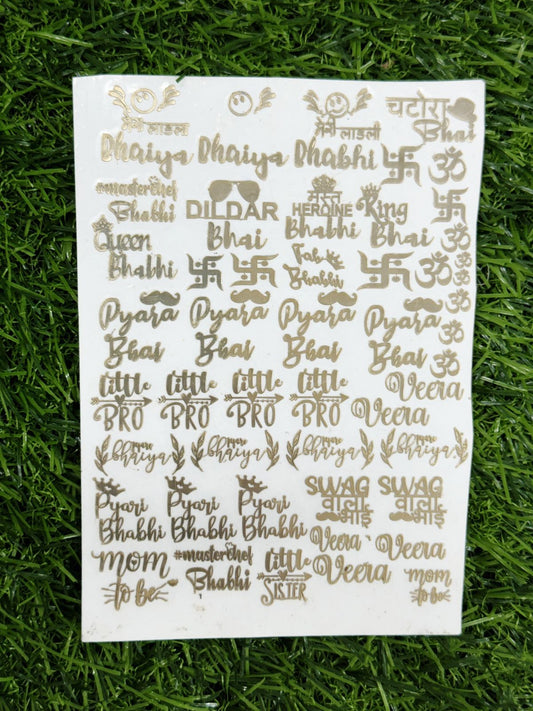 मेरी लाडला
Bhaiya
Bhaiya
मेरी लाडली
Bhabhi
चटोरा
Bhai
#masterchef
Bhabhi
DILDAR
Bhai
मस्त
HEROINE
Bhabhi
King
Bhai
Queen
Bhabhi
Fab
Bhabhi
ॐ
ॐ
ॐ
ॐ
ॐ
ॐ
ॐ
ॐ
Pyara
Bhai
Pyara
Bhai
Pyara
Bhai
Pyara
Bhai
little
BRO
little
BRO
little
BRO
little
BRO
Veera
Veera
more
bhaiya
more
bhaiya
more
bhaiya
more
bhaiya
Pyari
Bhabhi
Pyari
Bhabhi
Pyari
Bhabhi
SWAG
वाला
भाई
SWAG
वाला
भाई
mom
to be
#masterchef
Bhabhi
little
SISTER
Veera
Veera
Veera
mom
to be